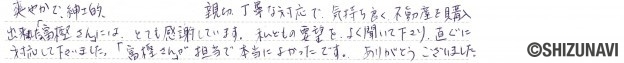 爽やかで、紳士的 親切、丁寧な対応で、気持ち良く、不動産を購入
出来た「富樫さん」には、とても感謝しています。私どもの要望を、よく聞いて下さり、直ぐに
対応して下さいました。「富樫さん」が担当で本当によかったです。ありがとうございました
©SHIZUNAVI